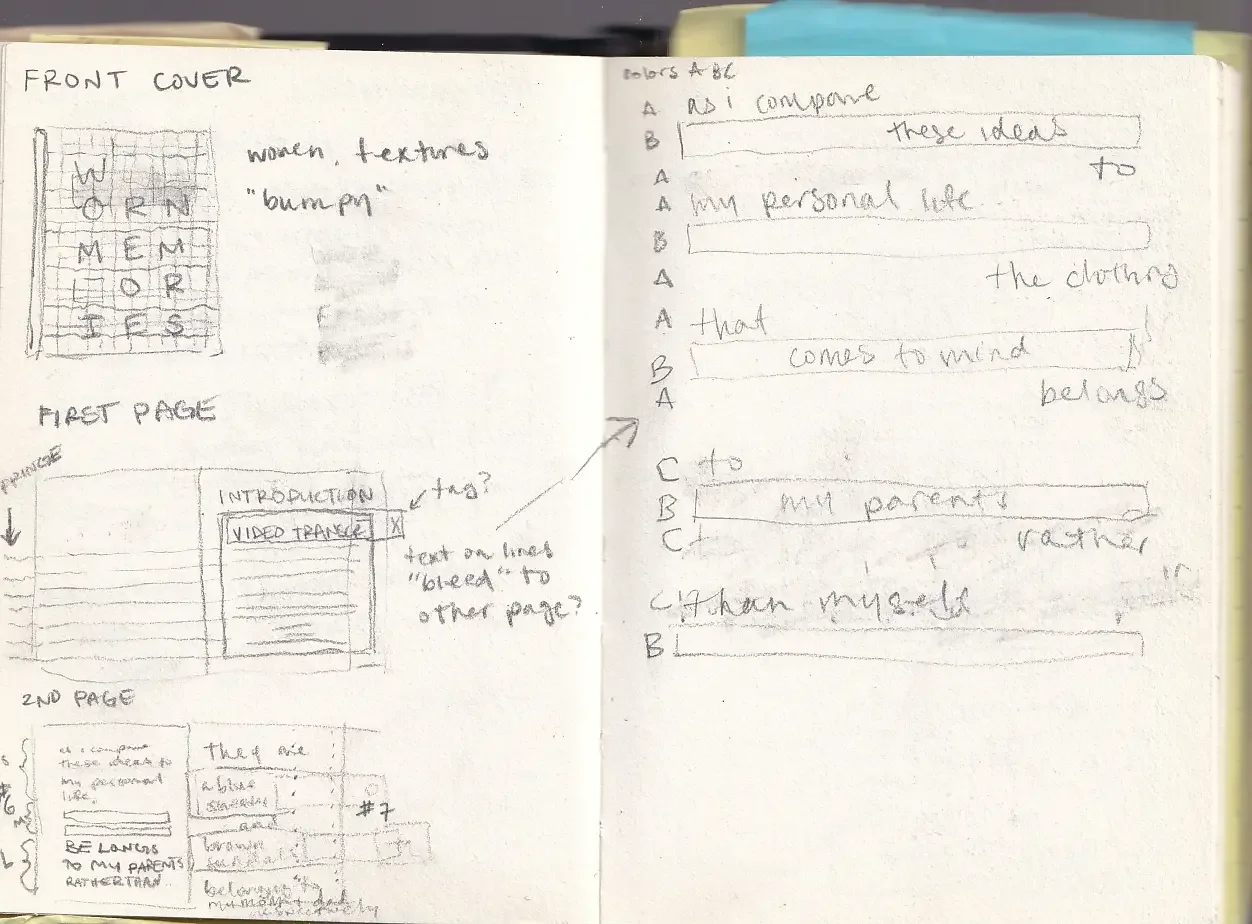 FRONT COVER
W
O R N
M E M
O R
I E S
women, textures
"bumpy"
FIRST PAGE
FRINGE
INTRODUCTION
VIDEO
X
tag?
text on lines
"bleed" to
other page?
2ND PAGE
as i compare
these ideas to
my personal
life.
BELONGS
TO MY PARENTS
RATHER THAN
#6
They are
a blue
and
brown
belonging to
my mom & dad
respectively
#7
colors A BC
A as i compare
B these ideas
A to
A my personal life
B
A the clothing
A that
B comes to mind
A belongs
C to
B my parents
C rather
C than myself
B